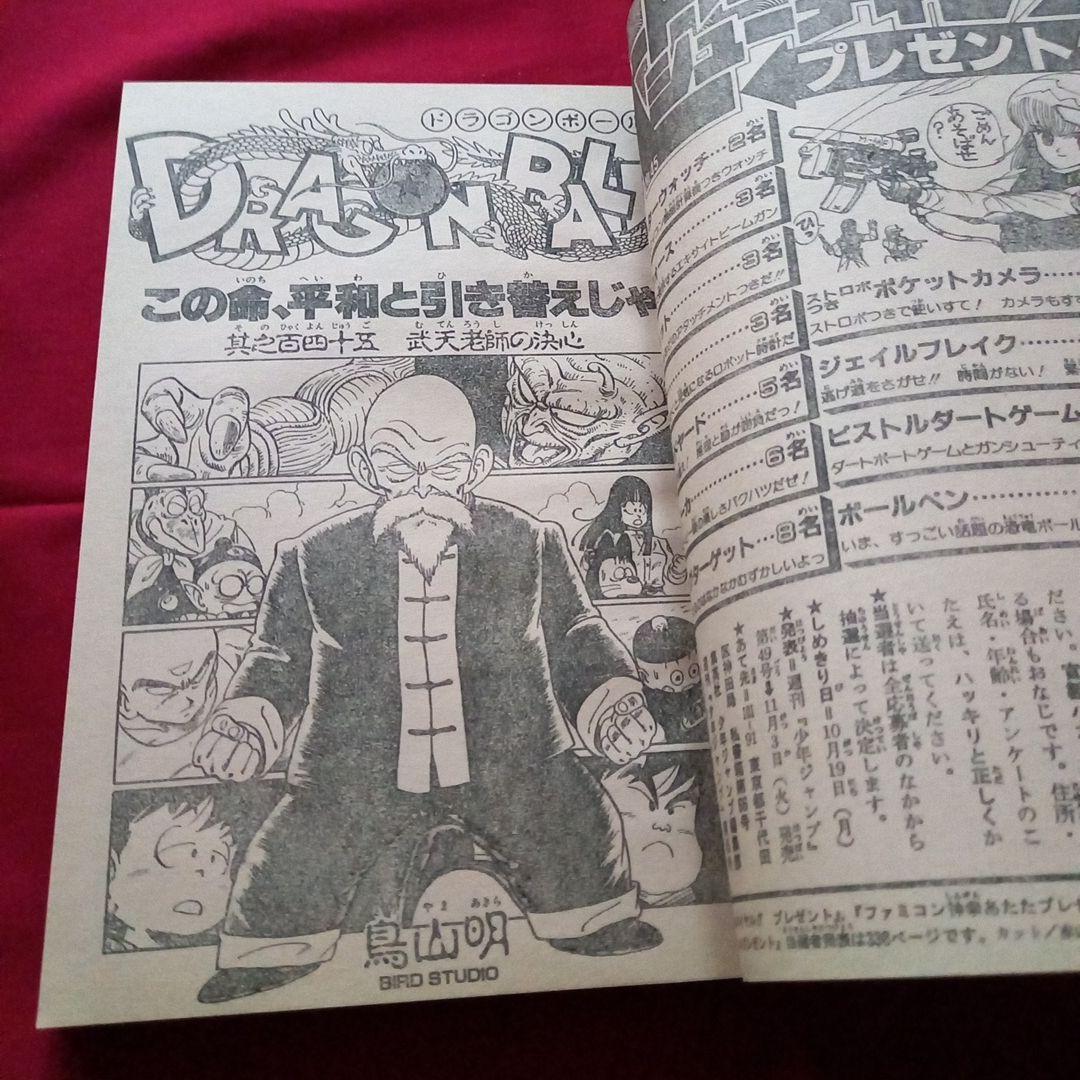 ドラゴンボール
DRAGON BALL
この命、平和と引き替えじゃ
其之百四十五 武天老師の決心
鳥山明
BIRD STUDIO
プレゼント
ごめん
あそばせ
?
ウォッチ…2名
つきウォッチ
ース…3名
エキサイトビームガン
ット…3名
のアタッチメントつきだ!!
3名
になるロボット時計だ
ード…5名
が勝負だっ!
6名
しさバクハツだぜ!
ターゲット…8名
なかなかむずかしいよっ
ストロボつきポケットカメラ
ストロボつきで使いすて! カメラもす
ジェイルブレイク
逃げ道をさがせ!! 時間がない!
ピストルダートゲーム
ダートボートゲームとガンシューティ
ボールペン
いま、すっごい話題の恐竜ボール
ださい。
る場合もおなじです。住所・
氏名・年齢・アンケートのこ
たえは、ハッキリと正しくか
いて送ってください。
★当選者は全応募者のなかから
抽選によって決定します。
★しめきり日=10月19日(月)
★発表=週刊『少年ジャンプ』
第49号・11月3日(火)発売
★あて先=〒101-91 東京都千代田
区神田局 私書箱
プレゼント』『ファミコン神拳あたたプレゼ
当選者発表は336ページです。カット/